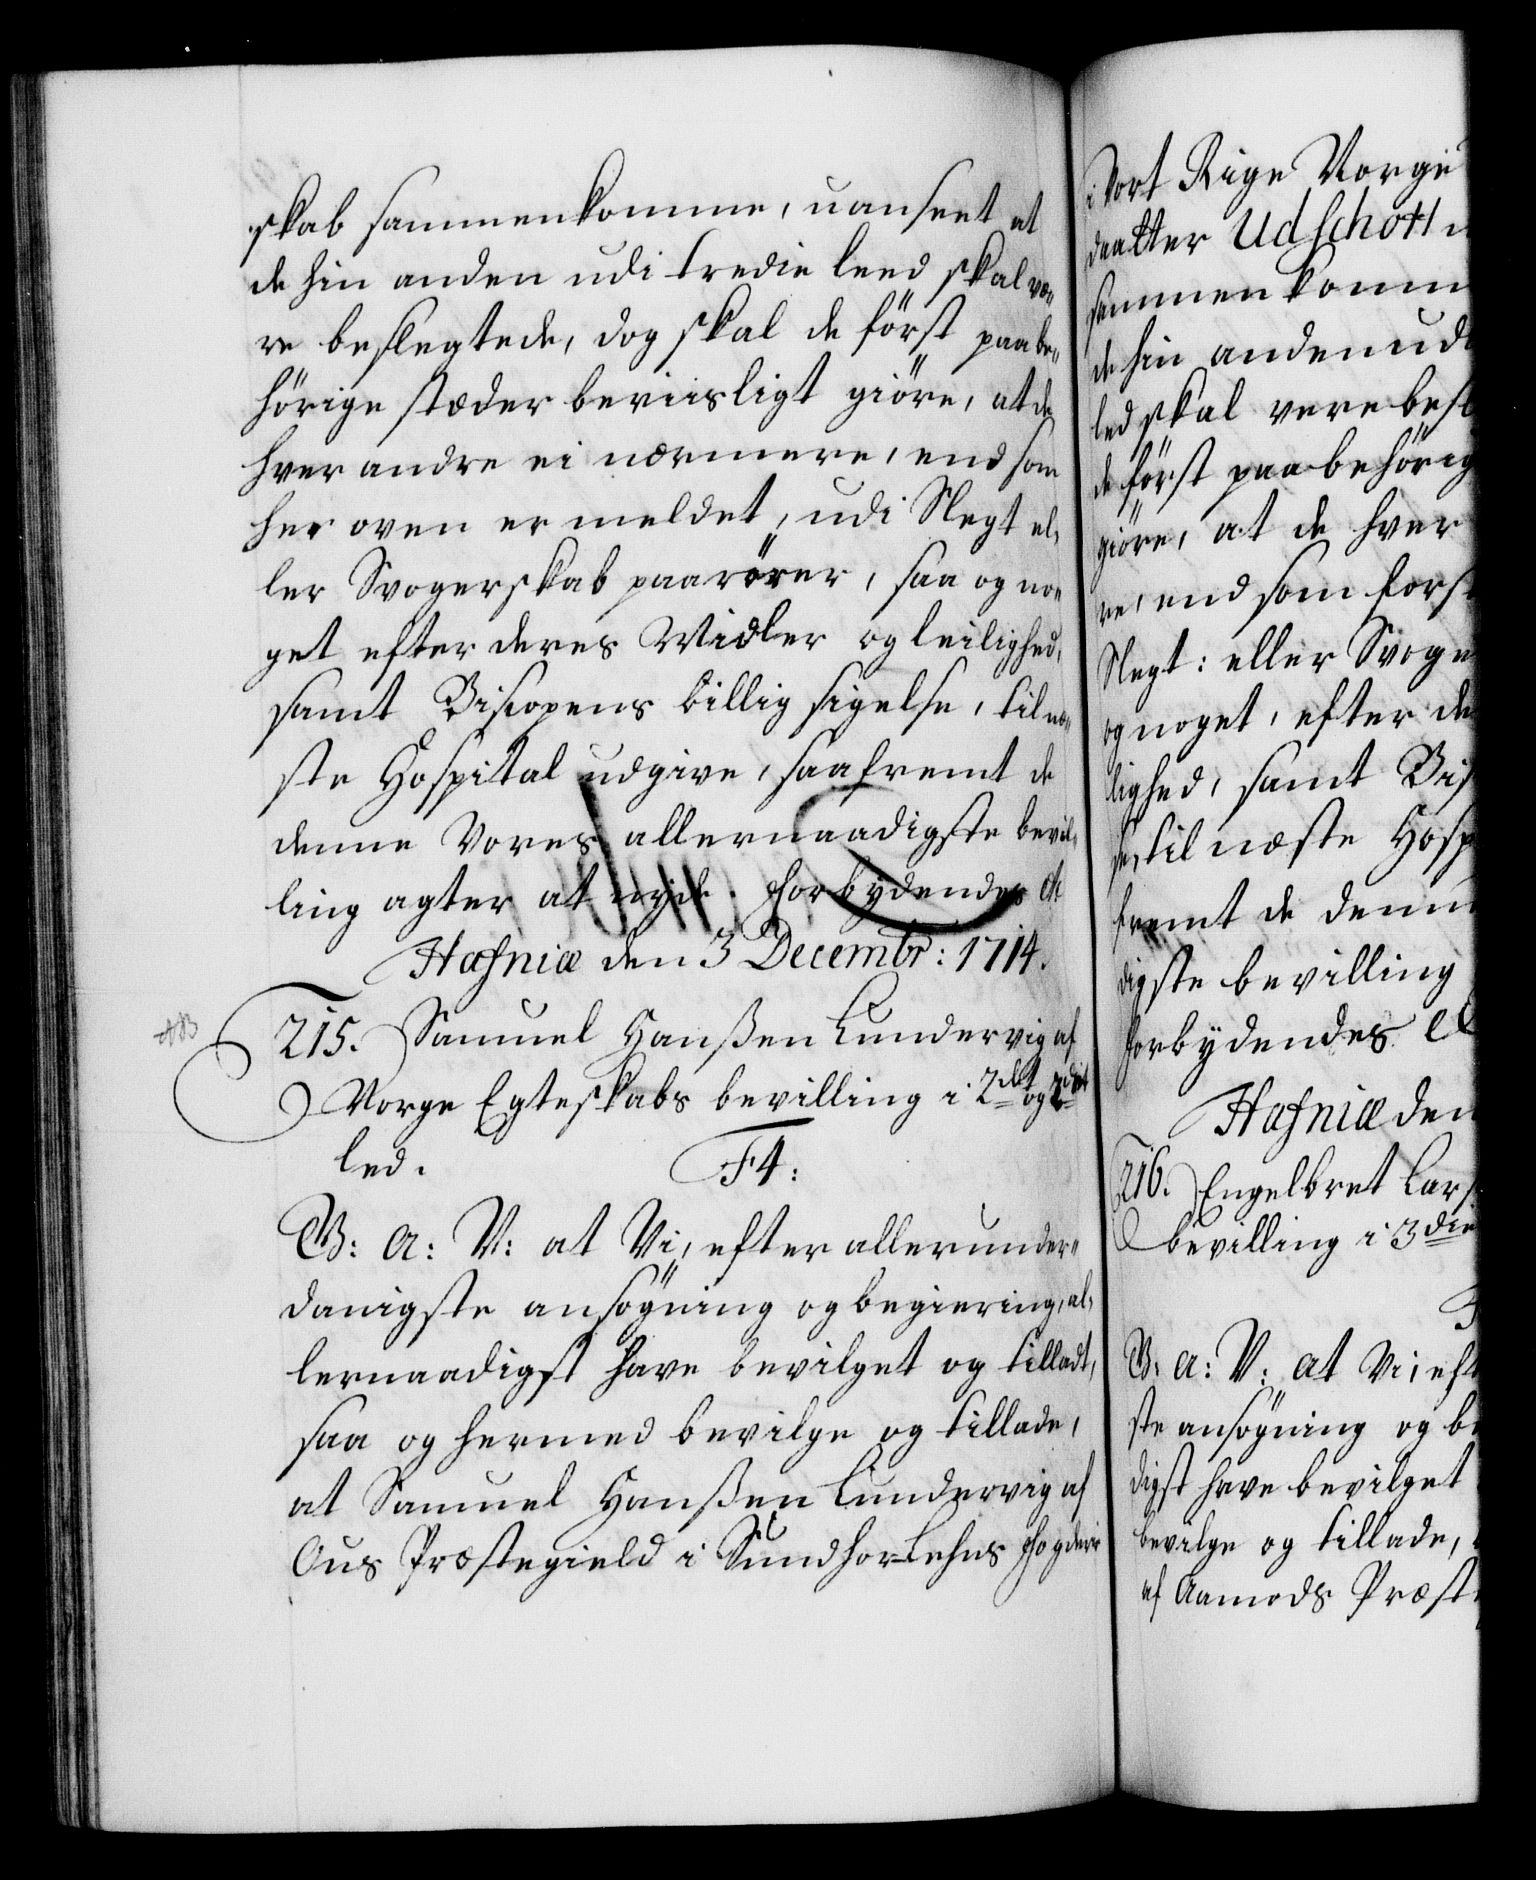 skab sammenkomme, uanseet at
de hin anden udi tredie leed skal væ„
re beslegtede, dog skal de först paa be„
hörige stæder beviisligt giöre, at de
hver andre ei nærmere, end som
her oven er meldet, udi Slegt el„
ler Svogerskab paarörer, saa og no„
get efter deres Midler og leilighed,
samt Biscopens billig sigelse, til næ„
ste Hospital udgive, saafremt de
denne Vores allernaadigste bevil„
ling agter at nyde. Forbydendes &c
Hafniæ den 3 Decembr: 1714.
215. Samuel Hanßen Lundervig af
Norge Egteskabs bevilling i 2det og 3die
led.
F4:
G: A: V: at Vi, efter allerunder„
danigste ansögning og begiering, al„
lernaadigst have bevilget og tilladt,
saa og hermed bevilge og tillade,
at Samuel Hanßen Lundervig af
Ous Præstegield i Sundhorlehns Fogderie
i Vort Rige Norge
daatter Udschott
sammenkomm
de hin anden ud
led skal vere besl
de först paa behörig
giöre, at de hver
re, end som forst
Slegt: eller Svoge
og noget, efter de
lighed, samt Bis
se, til næste Hosp
fremt de denn
digste bevilling
Forbydendes &
Hafniæ den
216. Engelbret Lars
bevilling i 3die
G: A: V: at Vi, eft
ste ansögning og be
digst have bevilget
bevilge og tillade,
af Aamods Præst